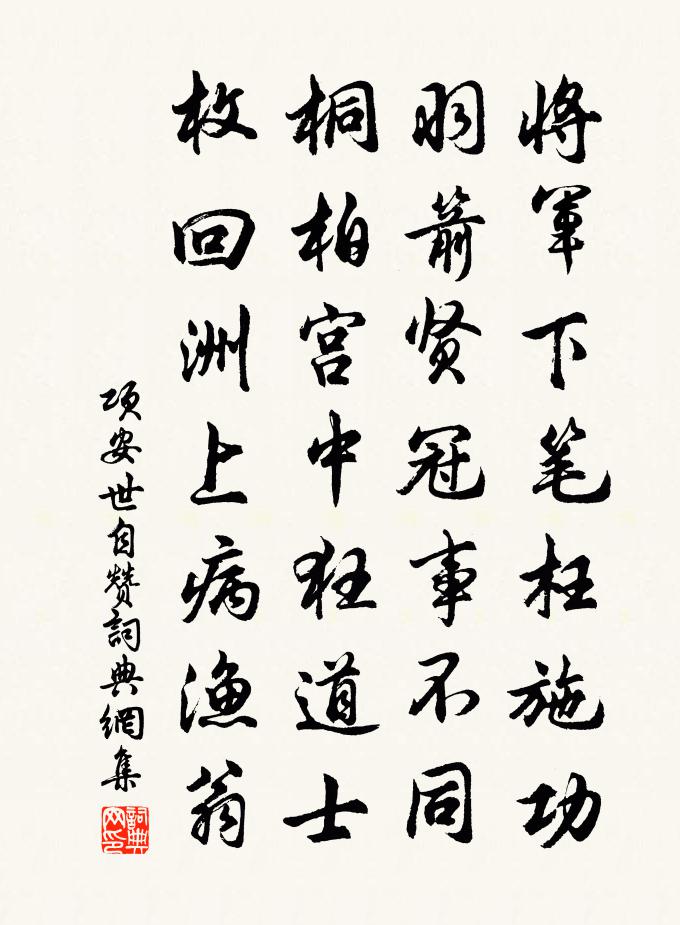 将军下笔枉施功
羽箭贤冠事不同
桐柏宫中狂道士
枚回洲上病渔翁
项安世自赞詞典網集
詞典网印